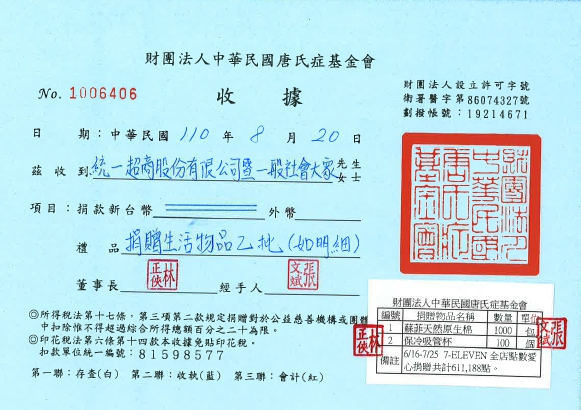 財團法人中華民國唐氏症基金會
No. 1006406
收據
財團法人設立許可字號
衛署醫字第86074327號
劃撥帳號：19214671
日 期：中華民國 110 年 8 月 20 日
茲收到 統一超商股份有限公司暨一般社會大眾 先生 女士
項目：捐款新台幣 外幣
禮品 捐贈生活物品乙批（如明細）
董事長 林正俠 經手人 張文斌
財團法人中華民國唐氏症基金會
◎所得稅法第十七條，第三項第二款規定捐贈對於公益慈善機構或團體
中扣除惟不得超過綜合所得總額百分之二十為限。
◎印花稅法第六條第十四款本收據免貼印花稅。
扣款單位統一編號：81598577
第一聯：存查(白) 第二聯：收執(藍) 第三聯：會計(紅)
財團法人中華民國唐氏症基金會
編號 捐贈物品名稱 數量 單位
蘇菲天然原生棉 1000 包
2 保冷吸管杯 100 個
備註 6/16-7/25 7-ELEVEN 全店點數愛
心捐贈共計611,188點。
林正俠
張文斌